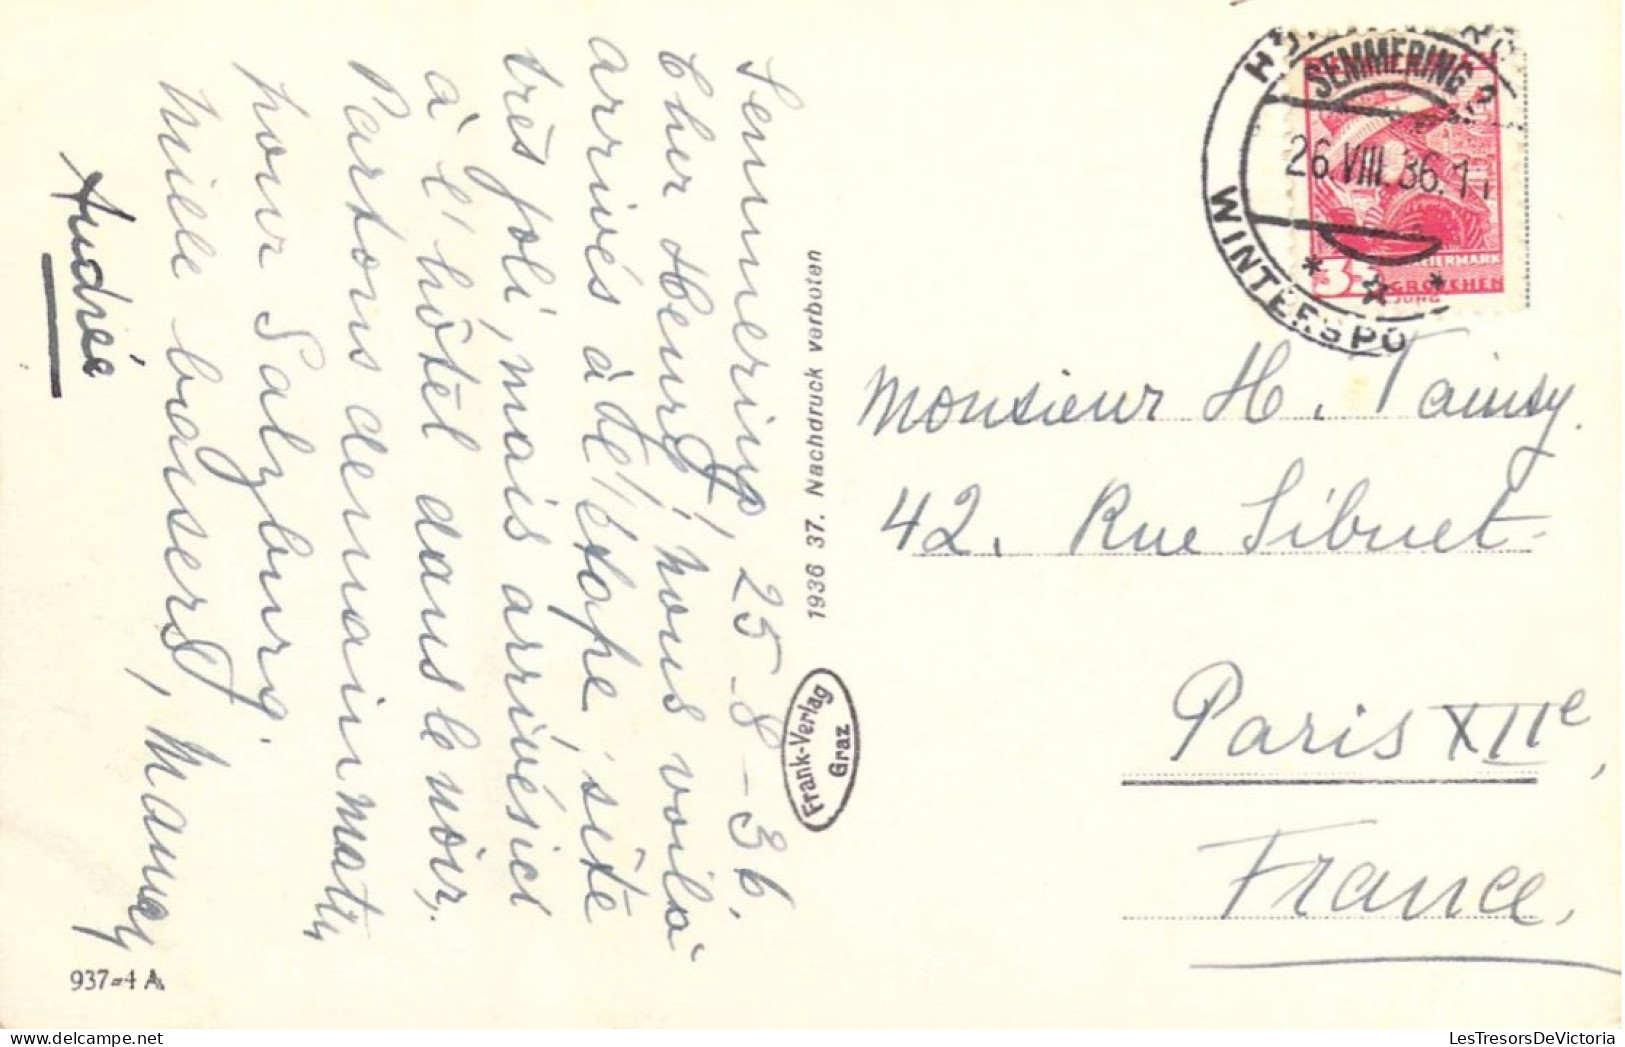 Semmering, 25-8-36.
Cher Henri, nous voilà
arrivés à l'étape, site
très joli, mais arrivés ici
à l'hôtel dans le noir,
Partons demain matin
pour Salzburg.
Mille baisers, Mamy
Andrée
937-4 A
1936 37. Nachdruck verboten
Frank-Verlag
Graz
SEMMERING
26.VIII.36.
WINTERSPO
STEIERMARK
GROSCHEN
JUNG
Monsieur H. Tainsy.
42, Rue Sibuet
Paris XIIe,
France,
LesTresorsDeVictoria